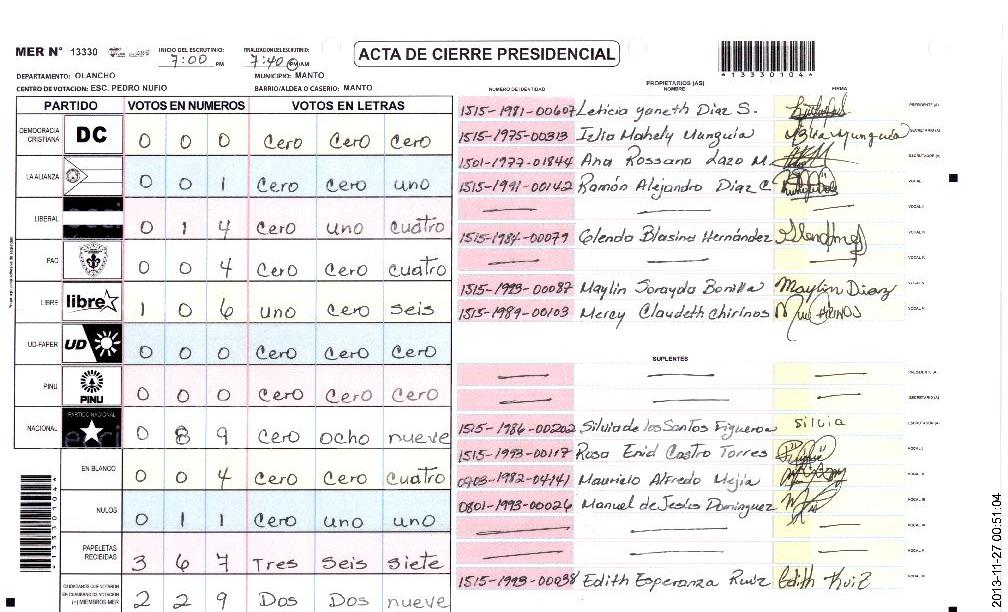 MER N° 13330 INICIO DEL ESCRUTINIO: 7:00 PM FINALIZACION DEL ESCRUTINIO: 7:40 PM/AM ACTA DE CIERRE PRESIDENCIAL *13330104*
DEPARTAMENTO: OLANCHO MUNICIPIO: MANTO
CENTRO DE VOTACION: ESC. PEDRO NUFIO BARRIO/ALDEA O CASERIO: MANTO
PROPIETARIOS (AS)
NUMERO DE IDENTIDAD NOMBRE FIRMA
PARTIDO VOTOS EN NUMEROS VOTOS EN LETRAS
1515-1981-00607 Leticia Yaneth Diaz S. PRESIDENTE (A)
DEMOCRACIA CRISTIANA DC 0 0 0 Cero Cero Cero
1515-1975-00313 Izlia Mahely Munguia SECRETARIO (A)
1501-1977-01844 Ana Rossana Lazo M. ESCRUTADOR (A)
LA ALIANZA 0 0 1 Cero Cero uno
1515-1991-00142 Ramón Alejandro Diaz C. VOCAL I
VOCAL II
LIBERAL 0 1 4 Cero uno cuatro
1515-1984-00079 Glenda Blasina Hernández VOCAL III
PAC 0 0 4 Cero Cero cuatro
1515-1993-00087 Maylin Sorayda Bonilla Maylin Diaz
LIBRE libre 1 0 6 uno Cero seis
1515-1989-00103 Mercy Claudeth Chirinos
UD-FAPER UD 0 0 0 Cero Cero Cero
SUPLENTES
PRESIDENTE (A)
PINU PINU 0 0 0 Cero Cero Cero
SECRETARIO (A)
NACIONAL PARTIDO NACIONAL 0 8 9 Cero ocho nueve
1515-1986-00202 Silvia de los Santos Figueroa Silvia ESCRUTADOR (A)
1515-1993-00117 Rosa Enid Castro Torres VOCAL I
EN BLANCO 0 0 4 Cero Cero Cuatro
0903-1982-04141 Mauricio Alfredo Mejia VOCAL II
0801-1993-00026 Manuel de Jesús Dominguez VOCAL III
NULOS 0 1 1 Cero uno uno
PAPELETAS RECIBIDAS 3 6 7 Tres Seis siete
1515-1993-00038 Edith Esperanza Ruiz Edith Ruiz
CIUDADANOS QUE VOTARON EN CUADERNO DE VOTACION (+) MIEMBROS MER 2 2 9 Dos Dos nueve
*13330104*
2013-11-27 00:51:04